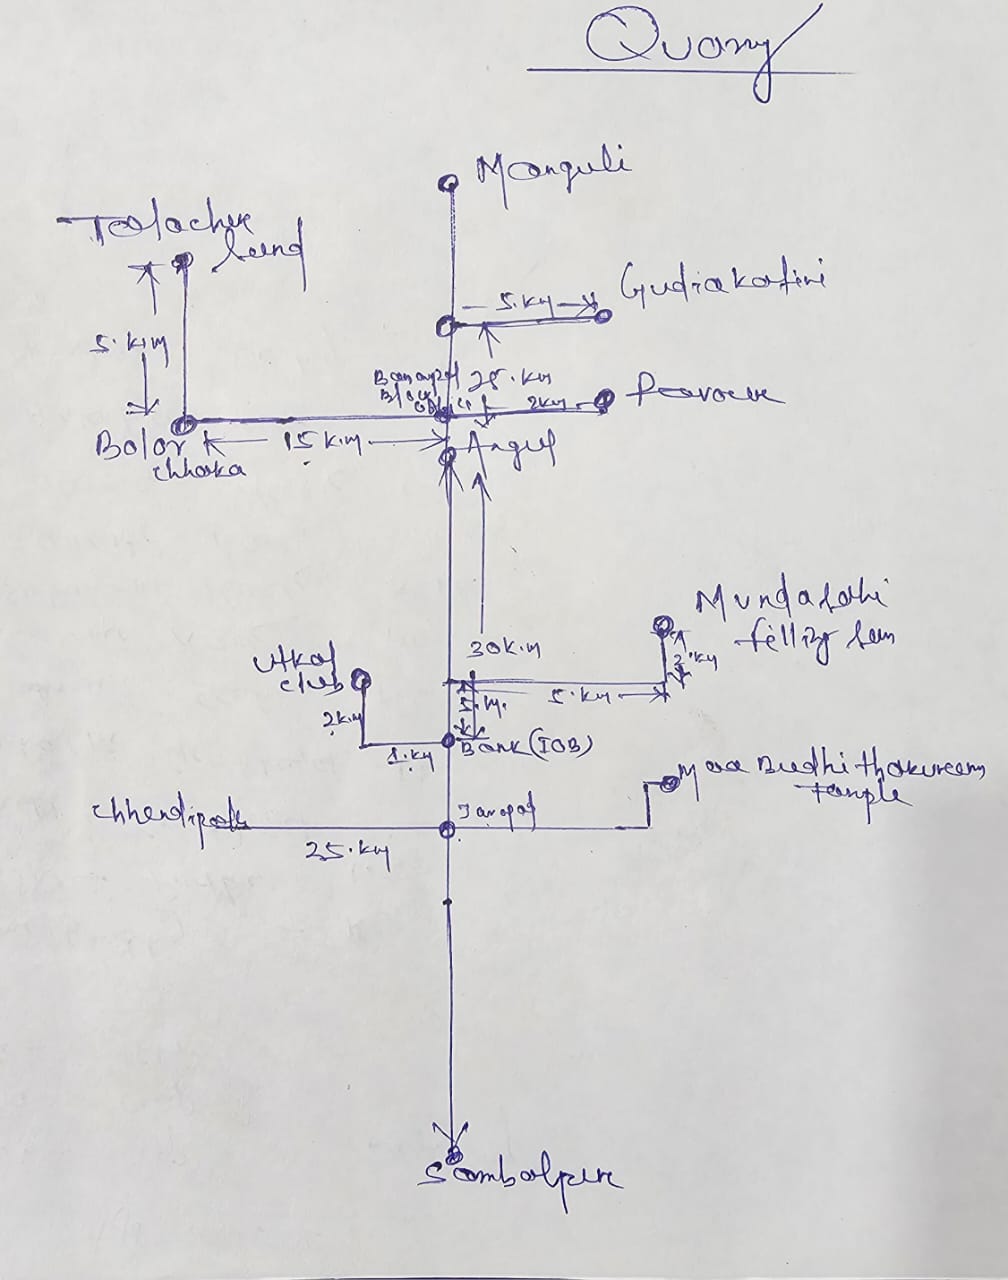 Quarry
Manguli
Talacher
Sand
5.km
Gudiakateni
5.km
Banarpal
Block
25.km
2km
Bolor
chhaka
15 km
Angul
Mundasahi
filling
30k.m
Utkal
club
2km
5.km
2km
5.m.
1.km
Bank (IOB)
Maa Budhi thakurani
Temple
chhendipada
Jarapad
25.km
Sambalpur